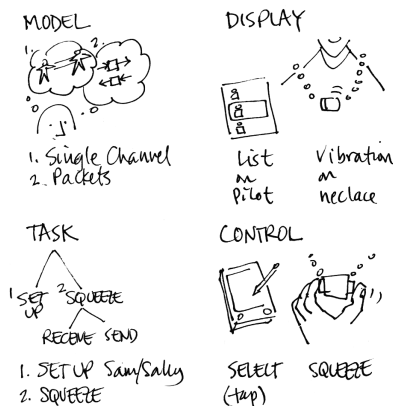 MODEL
1.
2.
1. Single Channel
2. Packets
DISPLAY
List
on
Pilot
Vibration
on
necklace
TASK
1 SET
UP
2 SQUEEZE
RECEIVE SEND
1. SET UP Sam/Sally
2. SQUEEZE
CONTROL
SELECT
(tap)
SQUEEZE